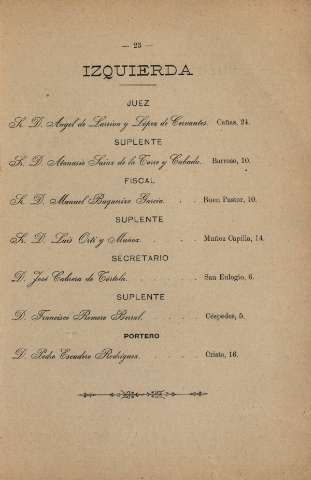 — 25 —
IZQUIERDA
JUEZ
Sr. D. Angel de Larriva y López de Cervantes. Cañas, 24.
SUPLENTE
Sr. D. Atanasio Sainz de la Torre y Cabada. Barroso, 10.
FISCAL
Sr. D. Manuel Baquerizo García. . . Buen Pastor, 10.
SUPLENTE
Sr. D. Luis Ortí y Muñoz. . . . . Muñoz Capilla, 14.
SECRETARIO
D. José Cabrera de Tórtola. . . . . San Eulogio, 6.
SUPLENTE
D. Francisco Romero Berral. . . . Céspedes, 5.
PORTERO
D. Pedro Escudero Rodríguez. . . . . Cristo, 16.